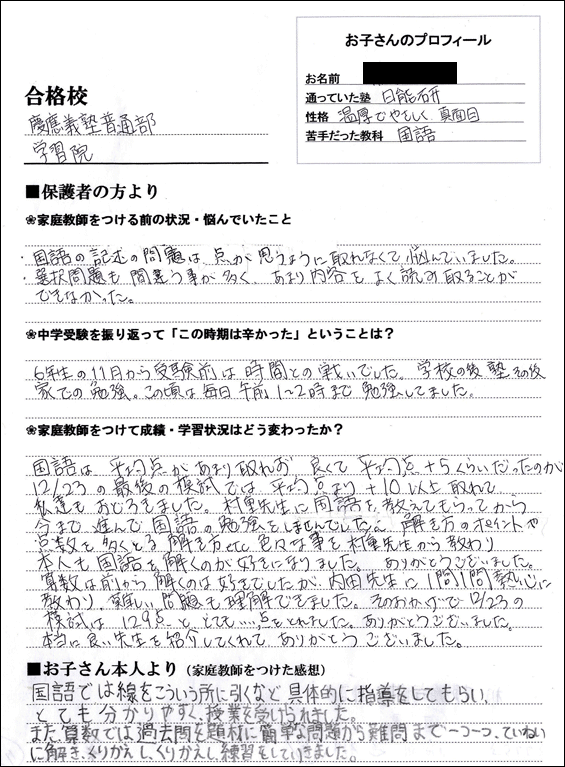 お子さんのプロフィール
お名前
通っていた塾 日能研
性格 温厚でやさしく真面目
苦手だった教科 国語
合格校
慶應義塾普通部
学習院
■保護者の方より
❀家庭教師をつける前の状況・悩んでいたこと
・国語の記述の問題は点が思うように取れなくて悩んでいました。
・選択問題も間違う事が多く、あまり内容をよく読み取ることが
できなかった。
❀中学受験を振り返って「この時期は辛かった」ということは？
6年生の11月から受験前は時間との戦いでした。学校の後塾その後
家での勉強。この頃は毎日午前1~2時まで勉強してました。
❀家庭教師をつけて成績・学習状況はどう変わったか？
国語は平均点があまり取れず、良くて平均点+5くらいだったのが
12/23の最後の模試では平均点より+10以上取れて
私達もおどろきました。村重先生に国語を教えてもらってから
今まで進んで国語の勉強をしませんでしたが、解き方のポイントや
点数を多くとる解き方etc色々な事を村重先生から教わり
本人も国語を解くのが好きになりました。ありがとうございました。
算数は前から解くのは好きでしたが、内田先生に1問1問熱心に
教わり、難しい問題も理解できました。そのおかげで12/23の
模試は129点と、とても……点をとれました。ありがとうございました。
本当に良い先生を紹介してくれてありがとうございました。
■お子さん本人より（家庭教師をつけた感想）
国語では線をこういう所に引くなど具体的に指導をしてもらい、
とても分かりやすく、授業を受けられました。
また算数では過去問を題材に簡単な問題から難問まで一つ一つ、ていねい
に解き、くりかえし、くりかえし、練習をしていきました。